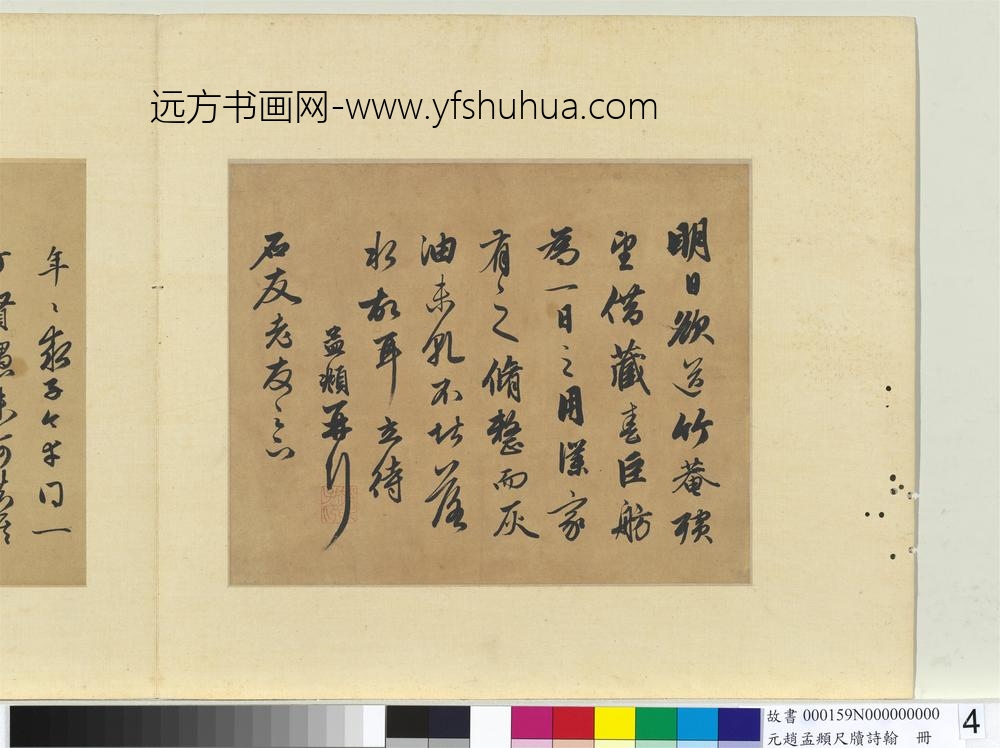 远方书画网-www.yfshuhua.com
明日欲过竹菴
望借藏春巨舫
為一日之用漢家
有之脩整而灰
油未乾不堪落
水故耳立待
孟頫再行
石友老友
年〻
同一
故書 000159N000000000
元趙孟頫尺牘詩翰 冊
4